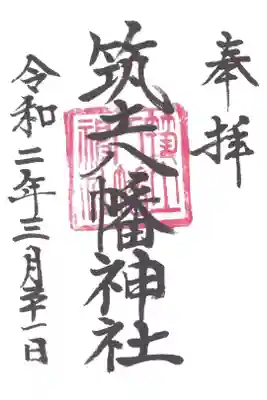 奉拝
筑土八幡神社
令和二年三月二十一日